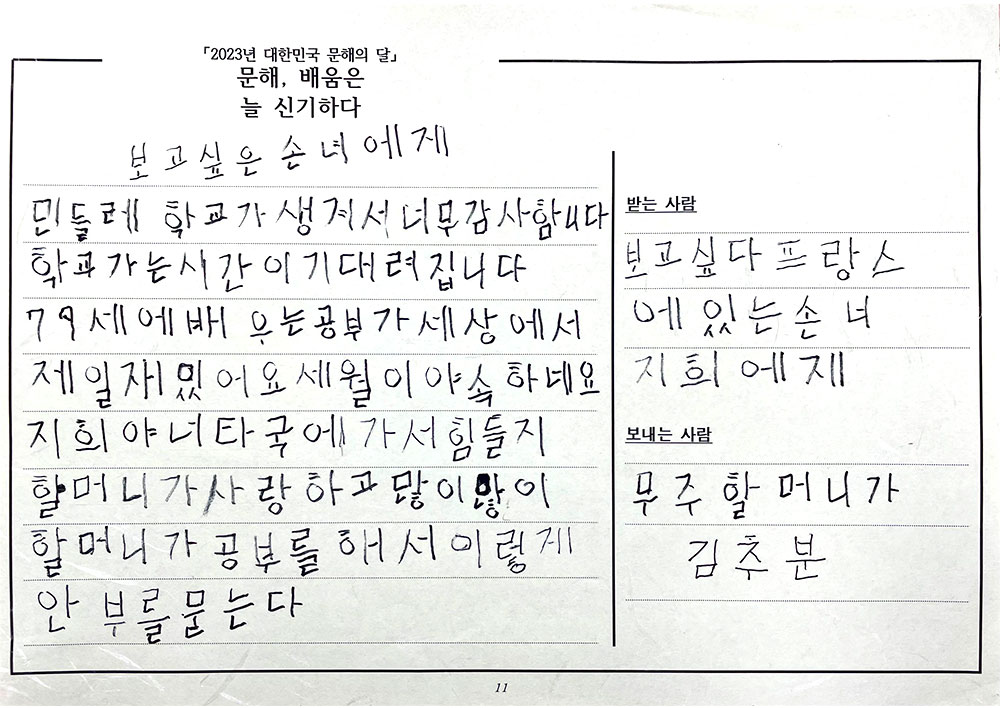 「2023년 대한민국 문해의 달」
문해, 배움은
늘 신기하다
보고싶은 손녀에게
민들레 학교가 생겨서 너무감사함니다
학교가는시간이기대려집니다
79세에배우는공부가세상에서
제일재밌어요세월이야속하네요
지희야너타국에가서힘들지
할머니가사랑하고많이많이
할머니가공부를해서이렇게
안부를묻는다
받는 사람
보고싶다프랑스
에있는손녀
지희에제
보내는 사람
무주할머니가
김추분
11